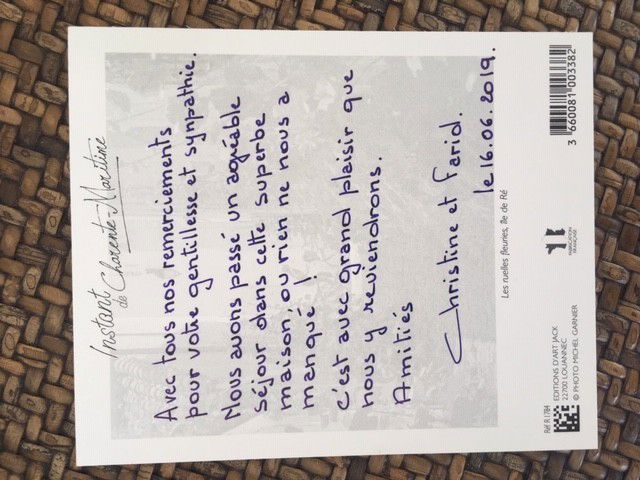 Instant
de Charente-Maritime
Avec tous nos remerciements
pour votre gentillesse et sympathie.
Nous avons passé un agréable
séjour dans cette superbe
maison, ou rien ne nous a
manqué !
C'est avec grand plaisir que
nous y reviendrons.
Amitiés
Christine et Farid.
le 16.06.2019.
Les ruelles fleuries, île de Ré
Réf R 1784
EDITIONS D'ART JACK
22700 LOUANNEC
© PHOTO MICHEL GARNIER
FABRICATION
FRANÇAISE
3 660081 003382